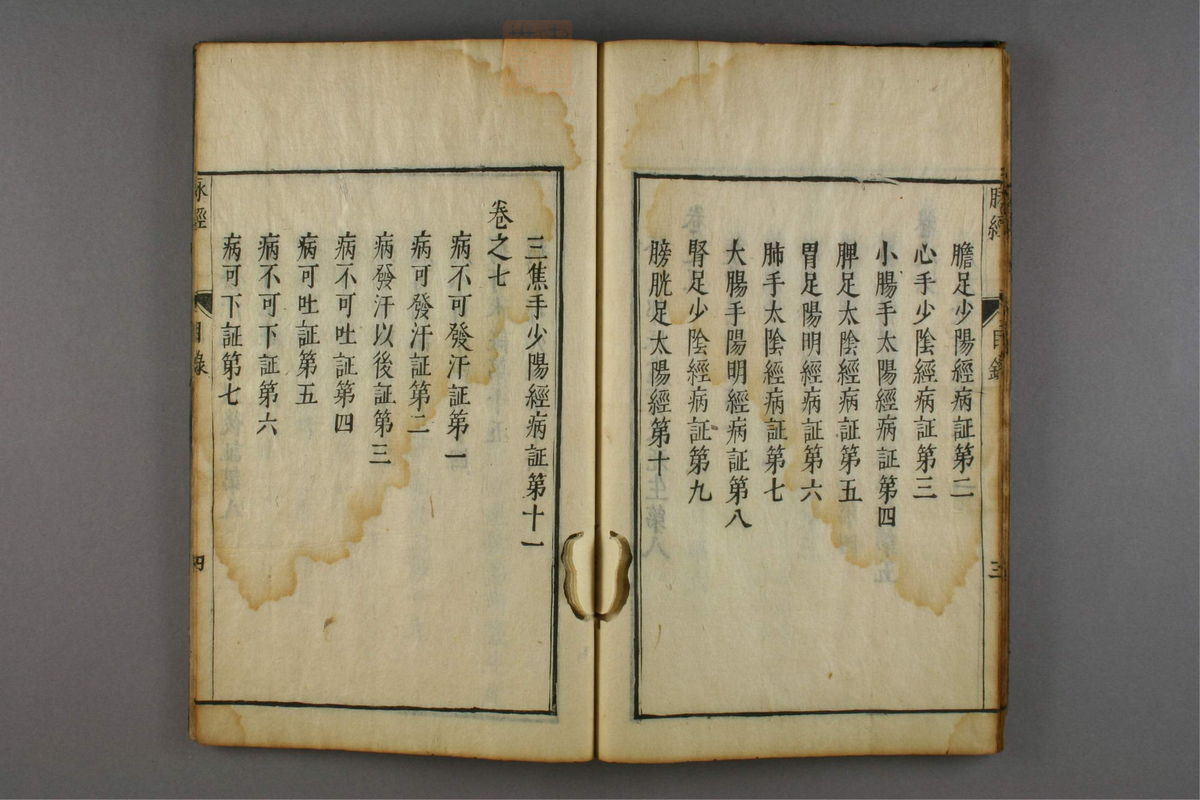 脉經 目錄 三
膽足少陽經病証第二
心手少陰經病証第三
小腸手太陽經病証第四
脾足太陰經病証第五
胃足陽明經病証第六
肺手太陰經病証第七
大腸手陽明經病証第八
腎足少陰經病証第九
膀胱足太陽經第十
三焦手少陽經病証第十一
卷之七
病不可發汗証第一
病可發汗証第二
病發汗以後証第三
病不可吐証第四
病可吐証第五
病不可下証第六
病可下証第七
脉經 目錄 四